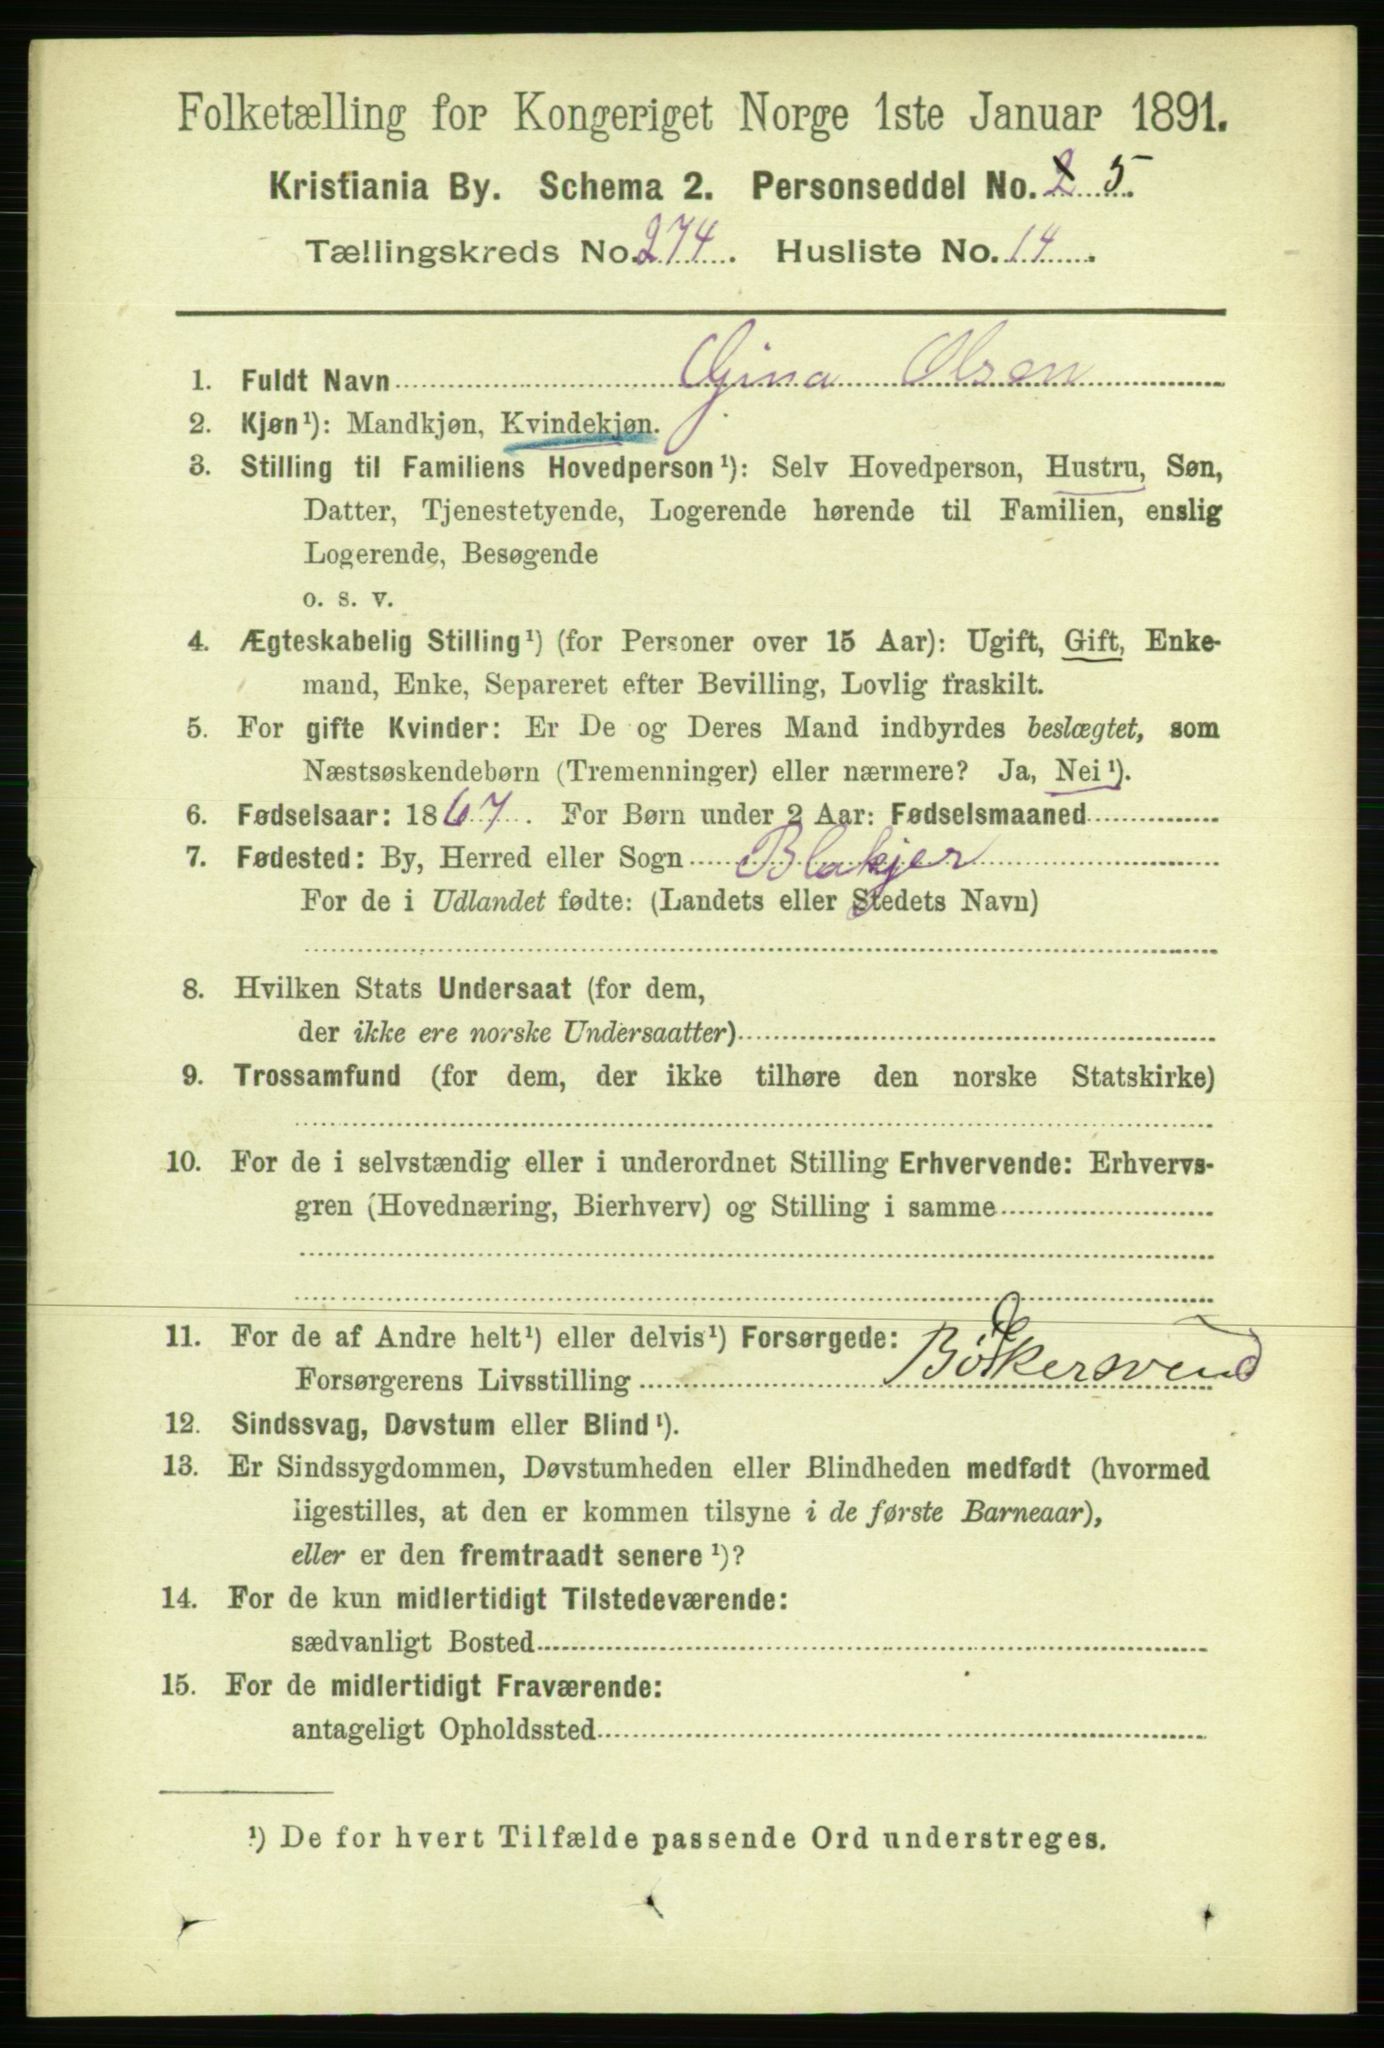 Folketælling for Kongeriget Norge 1ste Januar 1891.
Kristiania By. Schema 2. Personseddel No. 2 5
Tællingskreds No. 274. Husliste No. 14.
1. Fuldt Navn Gina Olsen
2. Kjøn¹): Mandkjøn, Kvindekjøn.
3. Stilling til Familiens Hovedperson¹): Selv Hovedperson, Hustru, Søn,
Datter, Tjenestetyende, Logerende hørende til Familien, enslig
Logerende, Besøgende
o. s. v.
4. Ægteskabelig Stilling¹) (for Personer over 15 Aar): Ugift, Gift, Enke-
mand, Enke, Separeret efter Bevilling, Lovlig fraskilt.
5. For gifte Kvinder: Er De og Deres Mand indbyrdes beslægtet, som
Næstsøskendebørn (Tremenninger) eller nærmere? Ja, Nei¹).
6. Fødselsaar: 1867. For Børn under 2 Aar: Fødselsmaaned
7. Fødested: By, Herred eller Sogn Blakjer
For de i Udlandet fødte: (Landets eller Stedets Navn)
8. Hvilken Stats Undersaat (for dem,
der ikke ere norske Undersaatter)
9. Trossamfund (for dem, der ikke tilhøre den norske Statskirke)
10. For de i selvstændig eller i underordnet Stilling Erhvervende: Erhvervs-
gren (Hovednæring, Bierhverv) og Stilling i samme
11. For de af Andre helt¹) eller delvis¹) Forsørgede:
Forsørgerens Livsstilling Bödkersvend
12. Sindssvag, Døvstum eller Blind¹).
13. Er Sindssygdommen, Døvstumheden eller Blindheden medfødt (hvormed
ligestilles, at den er kommen tilsyne i de første Barneaar),
eller er den fremtraadt senere¹)?
14. For de kun midlertidigt Tilstedeværende:
sædvanligt Bosted
15. For de midlertidigt Fraværende:
antageligt Opholdssted
¹) De for hvert Tilfælde passende Ord understreges.